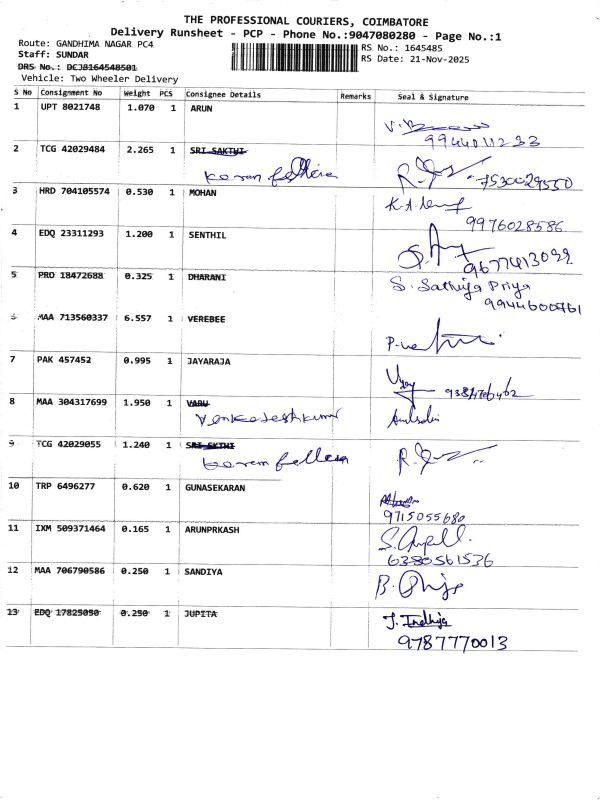 THE PROFESSIONAL COURIERS, COIMBATORE
Delivery Runsheet - PCP - Phone No.:9047080280 - Page No.:1
Route: GANDHIMA NAGAR PC4
Staff: SUNDAR
RS No.: 1645485
DRS No.: DCJB164548501
RS Date: 21-Nov-2025
Vehicle: Two Wheeler Delivery
S No Consignment No Weight PCS Consignee Details Remarks Seal & Signature
1 UPT 8021748 1.070 1 ARUN
9944011233
2 TCG 42029484 2.265 1 SRI SAKTHI
7530029550
3 HRD 704105574 0.530 1 MOHAN
9976028586
4 EDQ 23311293 1.200 1 SENTHIL
9677413092
5 PRO 18472688 0.325 1 DHARANI
S. Sathiya Priya
9944600761
6 MAA 713560337 6.557 1 VEREBEE
7 PAK 457452 0.995 1 JAYARAJA
8 MAA 304317699 1.950 1 VARU
Venkateshkumar
9 TCG 42029055 1.240 1 SRI SKTHI
R.
10 TRP 6496277 0.620 1 GUNASEKARAN
9715055680
11 IXM 509371464 0.165 1 ARUNPRKASH
6380561536
12 MAA 706790586 0.250 1 SANDIYA
13 EDQ 17825050 0.250 1 JUPITA
J. Indhija
9787770013